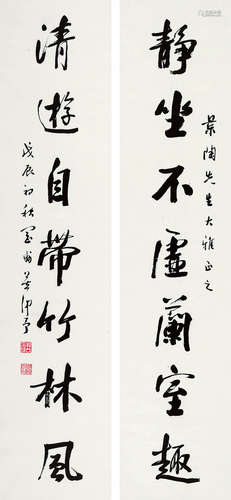 静坐不虚兰室趣
景陶先生大雅正之
清游自带竹林风
戊辰初秋